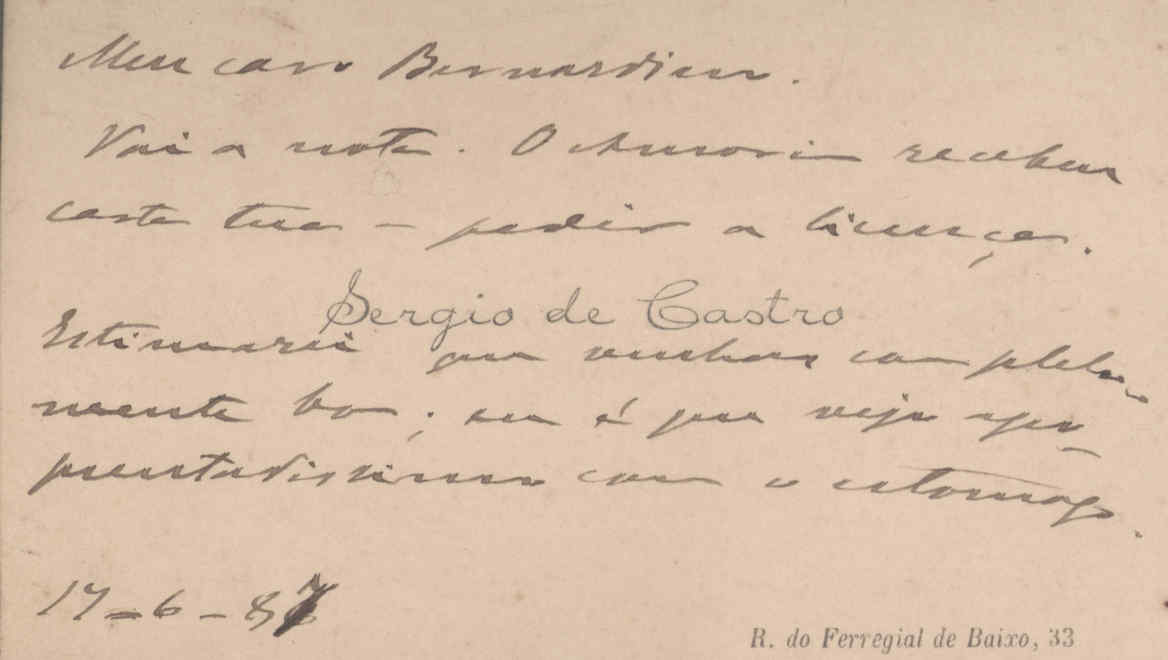 Meu caro Bernardino.
Vai a nota. O Amorim recebeu
carta tua – pedir a licença.
Sergio de Castro
Estimarei que venhas completa-
mente bom; eu é que vejo
com o estomago.
17–6–87
R. do Ferregial de Baixo, 33